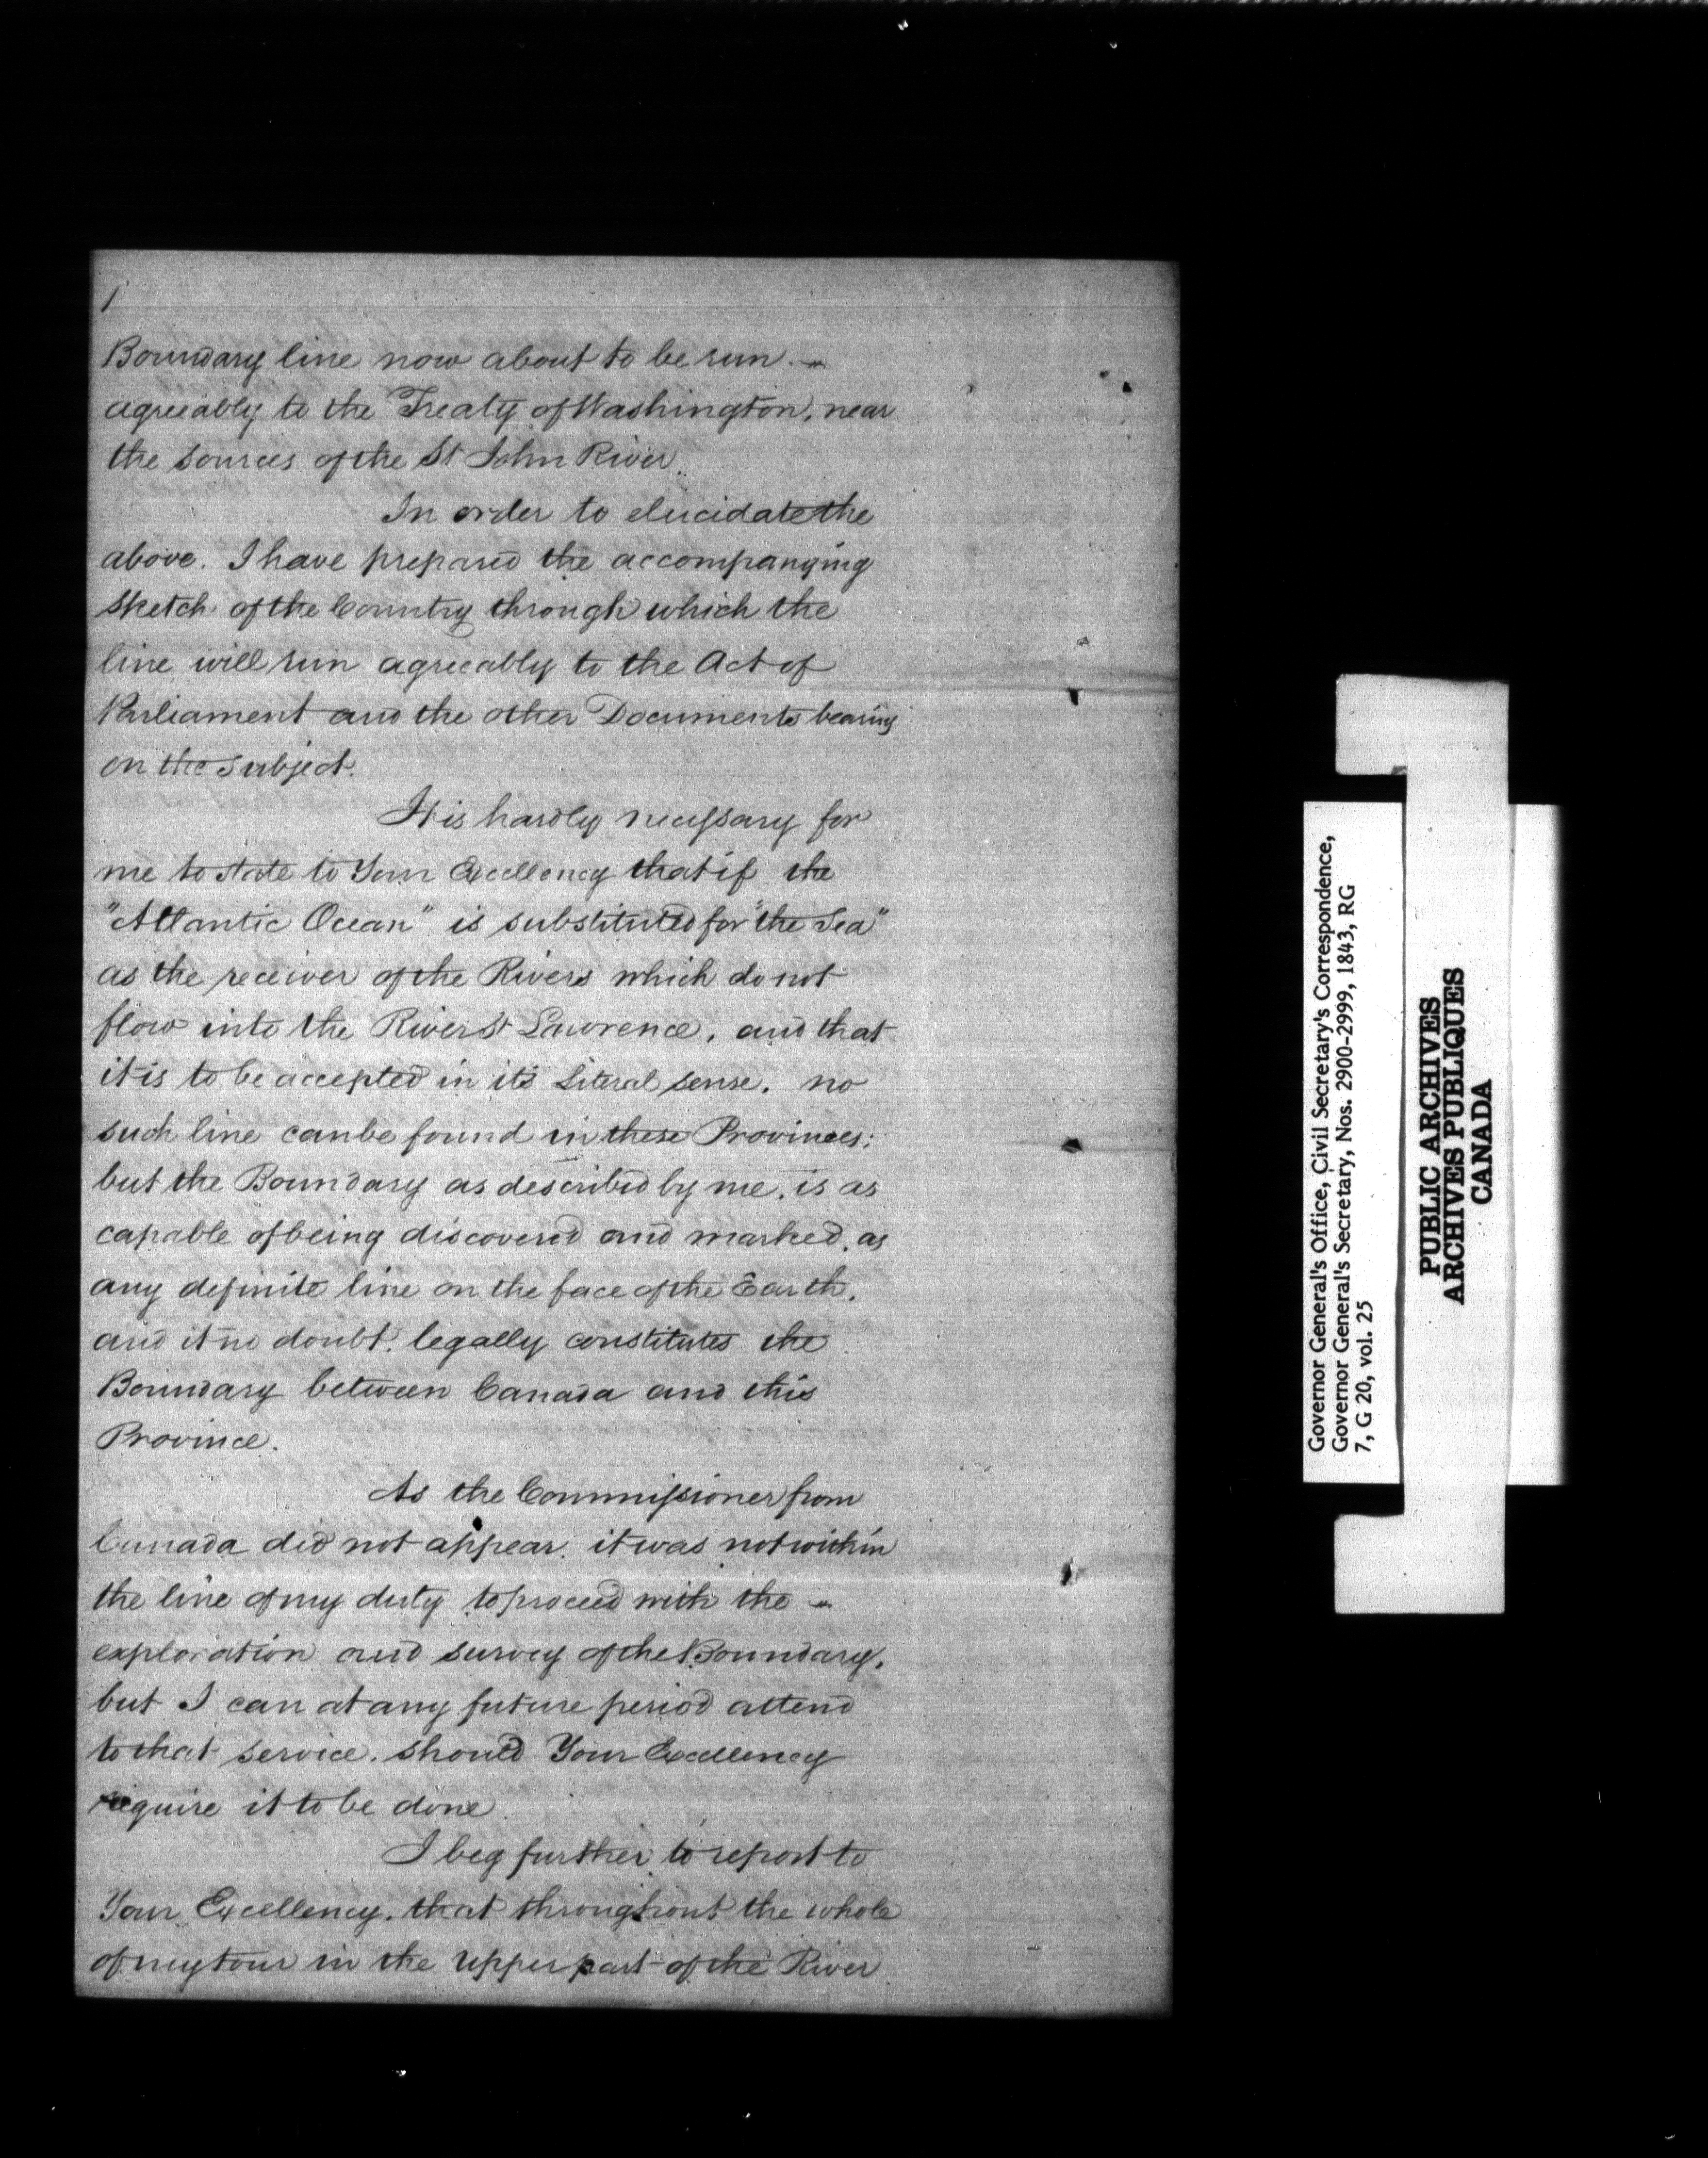 Boundary line now about to be run. —
agreeably to the Treaty of Washington, near
the sources of the St John River.
In order to elucidate the
above. I have prepared the accompanying
sketch of the Country through which the
line will run agreeably to the Act of
Parliament and the other Documents bearing
on the subject.
It is hardly necessary for
me to state to Your Excellency that if the
"Atlantic Ocean" is substituted for "the Sea"
as the receiver of the Rivers which do not
flow into the River St Lawrence, and that
it is to be accepted in its Literal sense. no
such line can be found in these Provinces;
but the Boundary as described by me, is as
capable of being discovered and marked, as
any definite line on the face of the Earth,
and it no doubt, legally constitutes the
Boundary between Canada and this
Province.
As the Commissioner from
Canada did not appear. it was not within
the line of my duty to proceed with the —
exploration and survey of the Boundary,
but I can at any future period attend
to that service, should Your Excellency
require it to be done.
I beg further to report to
Your Excellency, that throughout the whole
of my tour in the upper part of the River
Governor General's Office, Civil Secretary's Correspondence,
Governor General's Secretary, Nos. 2900-2999, 1843, RG
7, G 20, vol. 25
PUBLIC ARCHIVES
ARCHIVES PUBLIQUES
CANADA